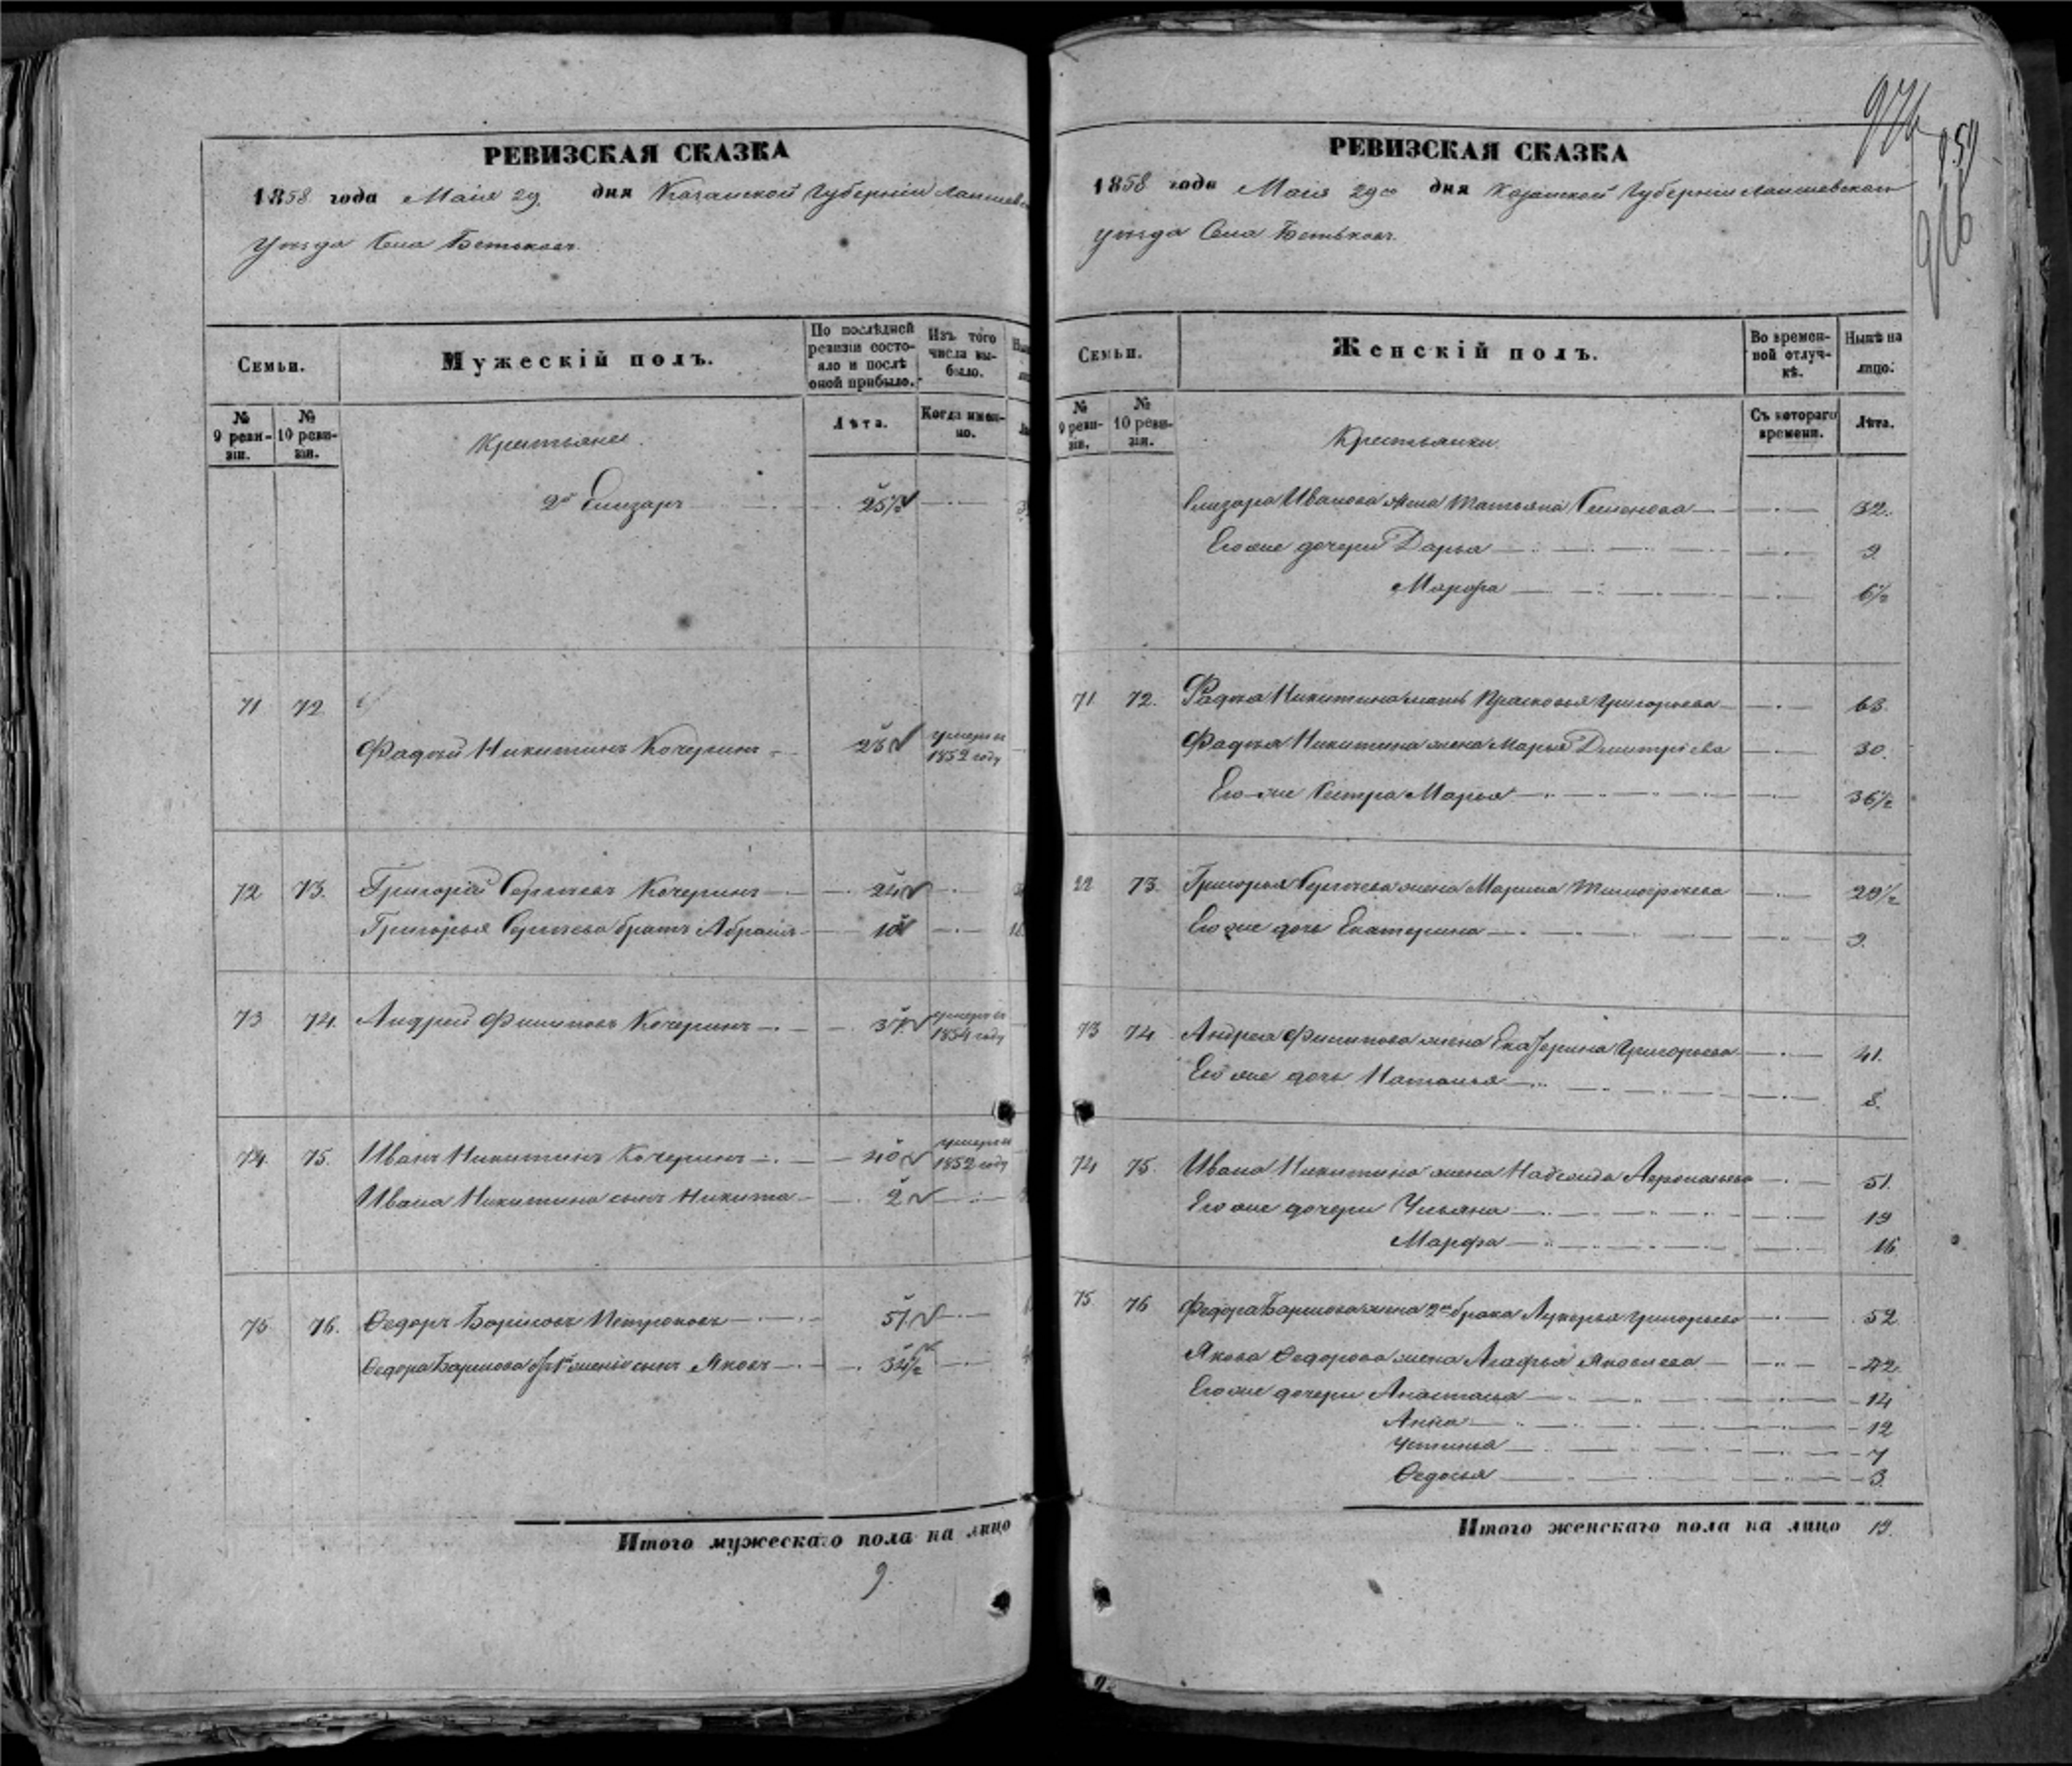 РЕВИЗСКАЯ СКАЗКА
1858 года Маія 29 дня Казанской Губерніи Лаишевс
уезда Села Бетьковъ
Семьи.
Мужескій полъ.
По послѣдней ревизіи состояло и послѣ оной прибыло.
Изъ того числа выбыло.
№ 9 ревизіи.
№ 10 ревизіи.
Лѣта.
Когда именно.
Крестьяне.
2й Елизаръ 25½
71 72
Фадѣй Никитинъ Кочеринъ 23 умеръ въ 1852 году
72 73. Григорій Сергѣевъ Кочеринъ 24
Григорья Сергѣева братъ Абрамъ 10
73 74. Андрей Филиповъ Кочеринъ 37 умеръ въ 1854 году
74. 75. Иванъ Никитинъ Кочеринъ 40 умеръ въ 1852 году
Ивана Никитина сынъ Никита 2
75 76. Ѳедоръ Борисовъ 57
Ѳедора Борисова сынъ Яковъ 34½
Итого мужескаго пола на лицо
9.
РЕВИЗСКАЯ СКАЗКА
1858 года Маія 29го дня Казанской Губерніи Лаишевскаго
уезда Села Бетьковъ.
Семьи.
Женскій полъ.
Во временной отлучкѣ.
Нынѣ на лицо.
№ 9 ревизіи.
№ 10 ревизіи.
Съ котораго времени.
Лѣта.
Крестьянки.
Елизара Иванова жена Татьяна Семенова 32.
Его же дочери Дарья 9
Марфа 6½
71 72. Фадѣя Никитина мать Прасковья Григорьева 63.
Фадѣя Никитина жена Марья Дмитріева 30.
Его же Сестра Марья 36½
22 73. Григорья Сергѣева жена Марина Тимофѣева 29½
Его же дочь Екатерина 9.
73 74 Андрея Филипова жена Екатерина Григорьева 41.
Его же дочь Наталья 8.
74 75. Ивана Никитина жена 51.
Его же дочери Ульяна 19
Марфа 16.
75. 76 Федора Борисова жена 2го брака Лукерья Григорьева 52
Якова Ѳедорова жена Агафья Яковлева 42.
Его же дочери Анастасья 14
Анна 12
Устинья 7
Ѳедосья 3.
Итого женскаго пола на лицо 19.